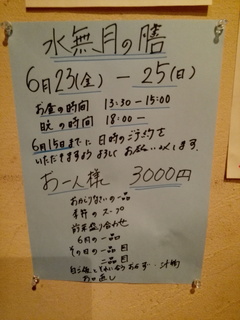 水無月の膳
6月23(金) — 25(日)
お昼の時間 13:30 - 15:00
晩の時間 18:00 —
6月15日までに日時のご予約を
いただきますようよろしくお願いします。
お一人様 3000円
おかわりないの一品
季節のスープ
前菜盛り合わせ
6月の一品
その日の一品目
二品目
汁物